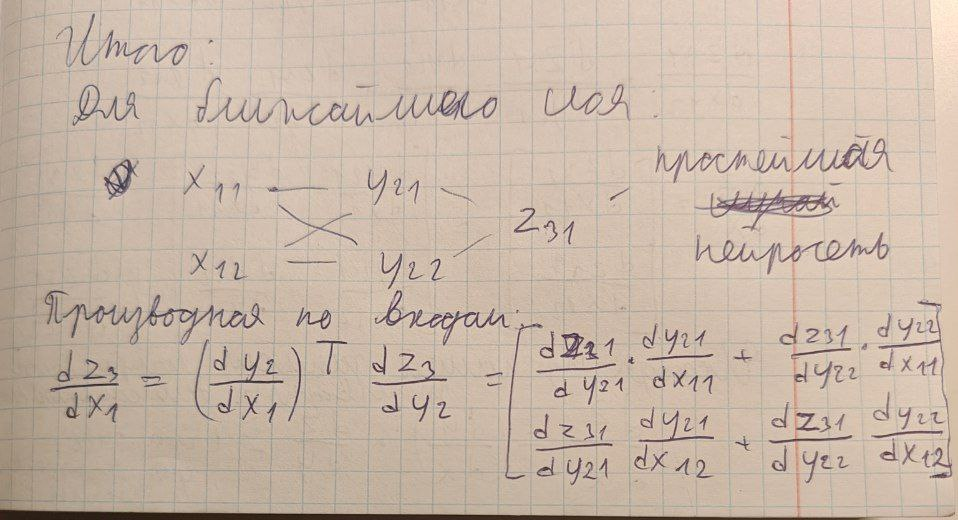 Итого:
Для ближайшего слоя.
x11 — y21
z31
простейшая
x12 — y22
нейросеть
Производная по входам:
dz3/dx1 = (dy2/dx1)^T dz3/dy2 = [ dz31/dy21 · dy21/dx11 + dz31/dy22 · dy22/dx11
dz31/dy21 dy21/dx12 + dz31/dy22 dy22/dx12 ]